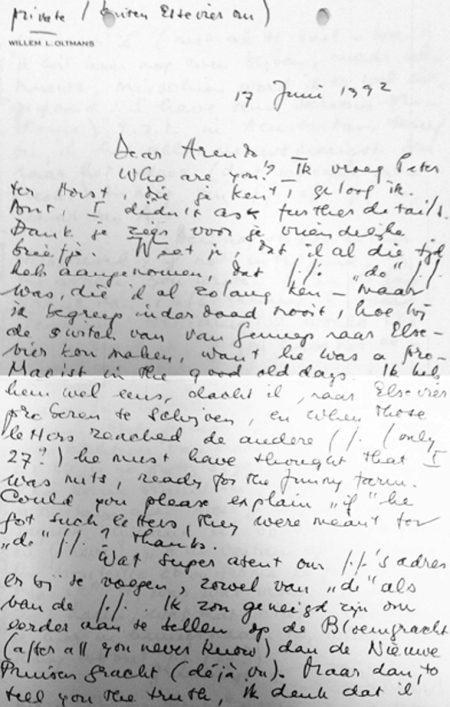 private / buiten Elsevier om)
WILLEM L. OLTMANS
17 Juni 1992
Dear Arendo,
Who are you? Ik vroeg Peter
ter Horst, die je kent, geloof ik.
But, I didn't ask further details.
Dank je zeer voor je vriendelijke
briefje. Weet je, dat ik al die tijd
heb aangenomen, dat J.J. „de" J.J.
was, die ik al zolang ken – maar
ik begreep inderdaad nooit, hoe hij
de switch van van Gennep naar Else-
vier kon maken, want he was a pro-
Maoist in the good old days. Ik heb
hem wel eens, dacht ik, naar Elsevier
proberen te schrijven, en when those
letters reached de andere J.J. (only
27?) he must have thought that I
was nuts, ready for the funny farm.
Could you please explain „if" he
got such letters, they were meant for
„de" J.J.? Thanks.
Wat super attent om J.J.'s adres
er bij te voegen, zowel van „de" als
van de J.J. Ik zou geneigd zijn om
eerder aan te bellen op de Bloemgracht
(after all you never know) dan de Nieuwe
Prinsengracht (déjà vu). Maar dan, to
tell you the truth, ik denk dat ik